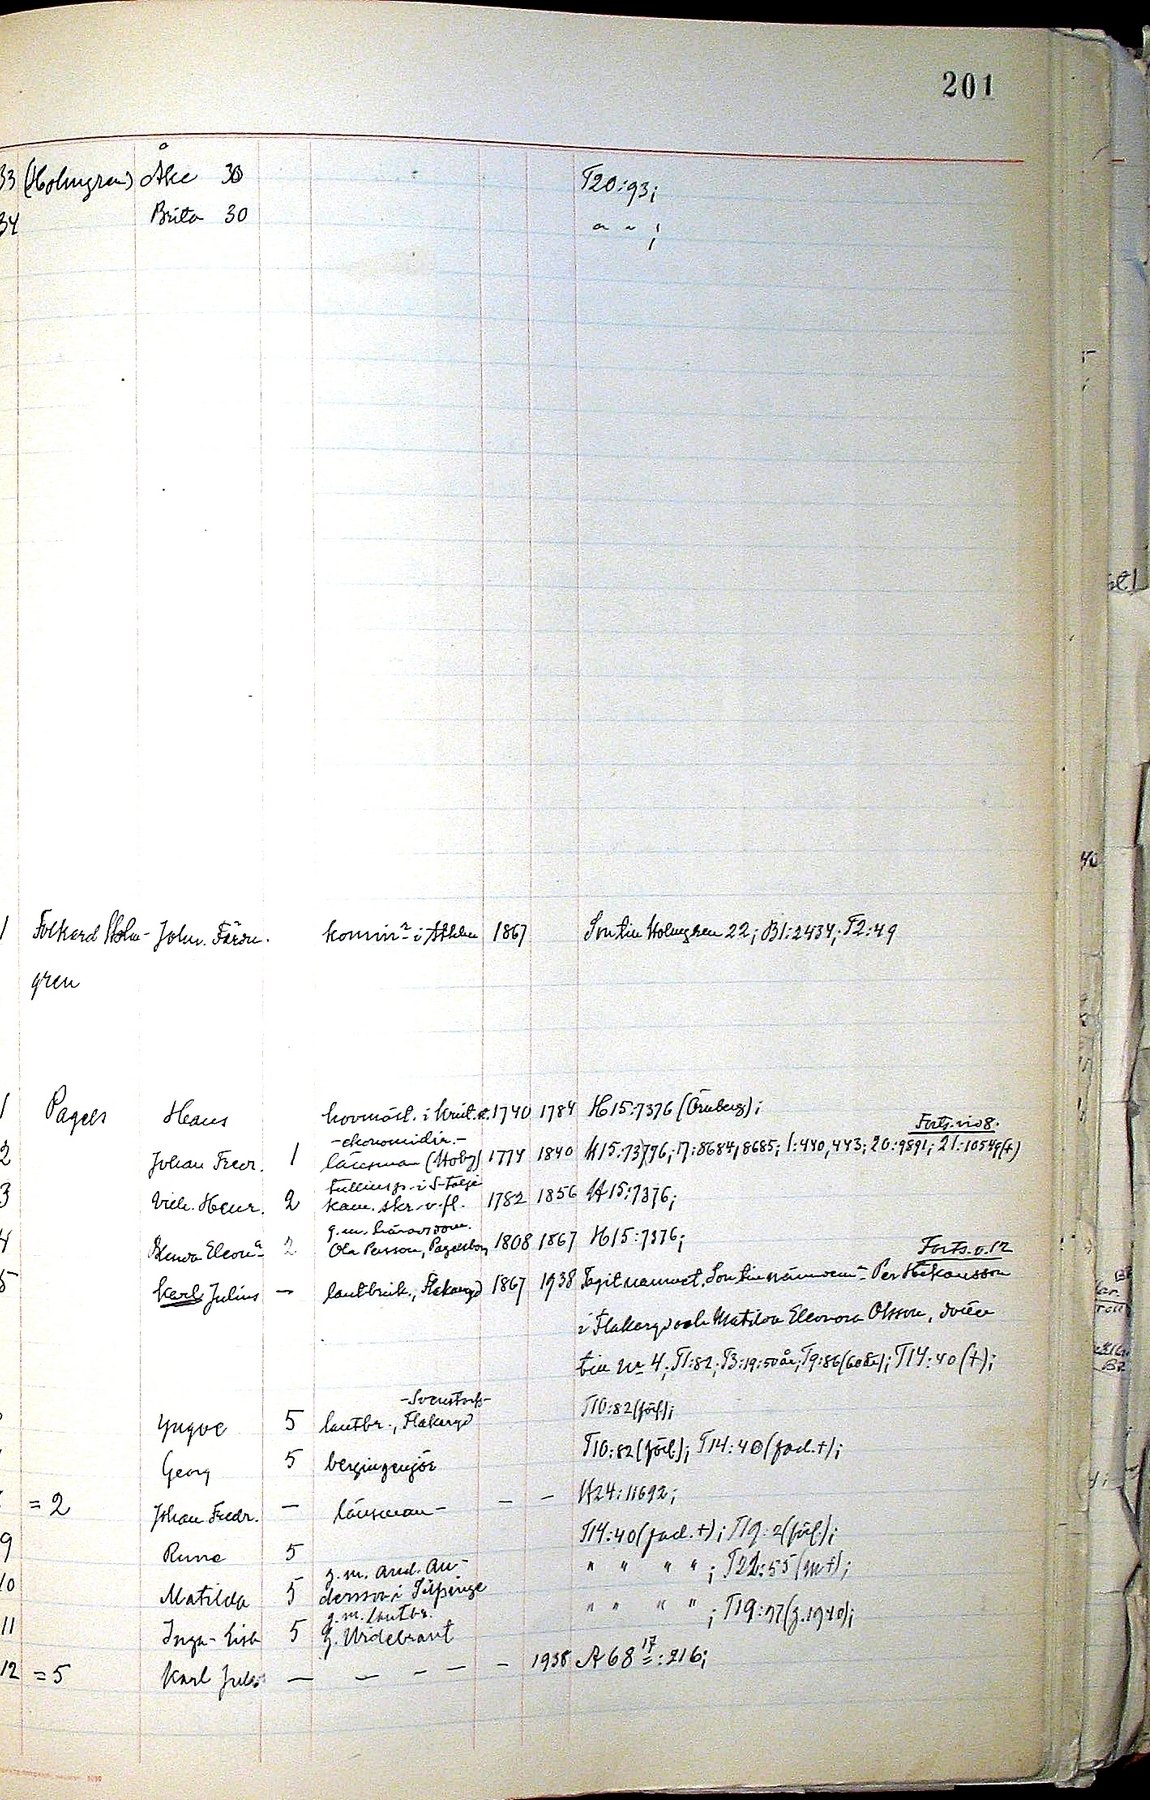 201
33 (Holmgren) Åke 30 T20:93;
34 Brita 30 " " ;
1 Folkard Holm- John. Färdn. komm:r i Athlu 1867 Son till Holmgren 22; B1:2434; T2:49
gren
1 Pagels Hans hovmäst. i Krist. 1740 1784 H15:7376 (Öruberg);
Forts. n:o 8.
-ekonomidir.-
2 Johan Fredr. 1 länsman (Hoby) 1774 1840 H15:7376; 17:8684, 8685; 1:440, 443; 20:9891; 21:10549(+)
tullinsp. i S-tälje
3 Vilh. Henr. 2 kam. skr. v. fl. 1782 1856 H15:7376;
g.m. häradsdom.
4 Eleon:a 2 Ola Persson, Pagelsborg 1808 1867 H15:7376;
Forts. n. 12
5 Karl Julius — lantbruk., Flakargd 1867 1938 Tagit namnet, Son till nämndem:- Per Håkansson
i Flakargd och Matilda Eleonora Olsson, dotter
till N:r 4; T1:82; T3:19:50 år; T9:86(60år); T14:40(+);
-Svenstorp-
Yngve 5 lantbr., Flakargd T10:82(förl.);
Georg 5 bergingenjör T10:82(förl.); T14:40(fad.+);
= 2 Johan Fredr. — länsman — — — H24:11692;
9 Rune 5 T14:40(fad.+); T19:2(förl.);
g.m. and. An-
10 Matilda 5 dersson i Silpinge " " " " ; T22:55(m+);
g.m. lantbr.
11 Inga-Lisa 5 G. Hildebrant " " " " ; T19:97(g.1940);
12 = 5 Karl Julius — — — — — 1938 A68 17:216;